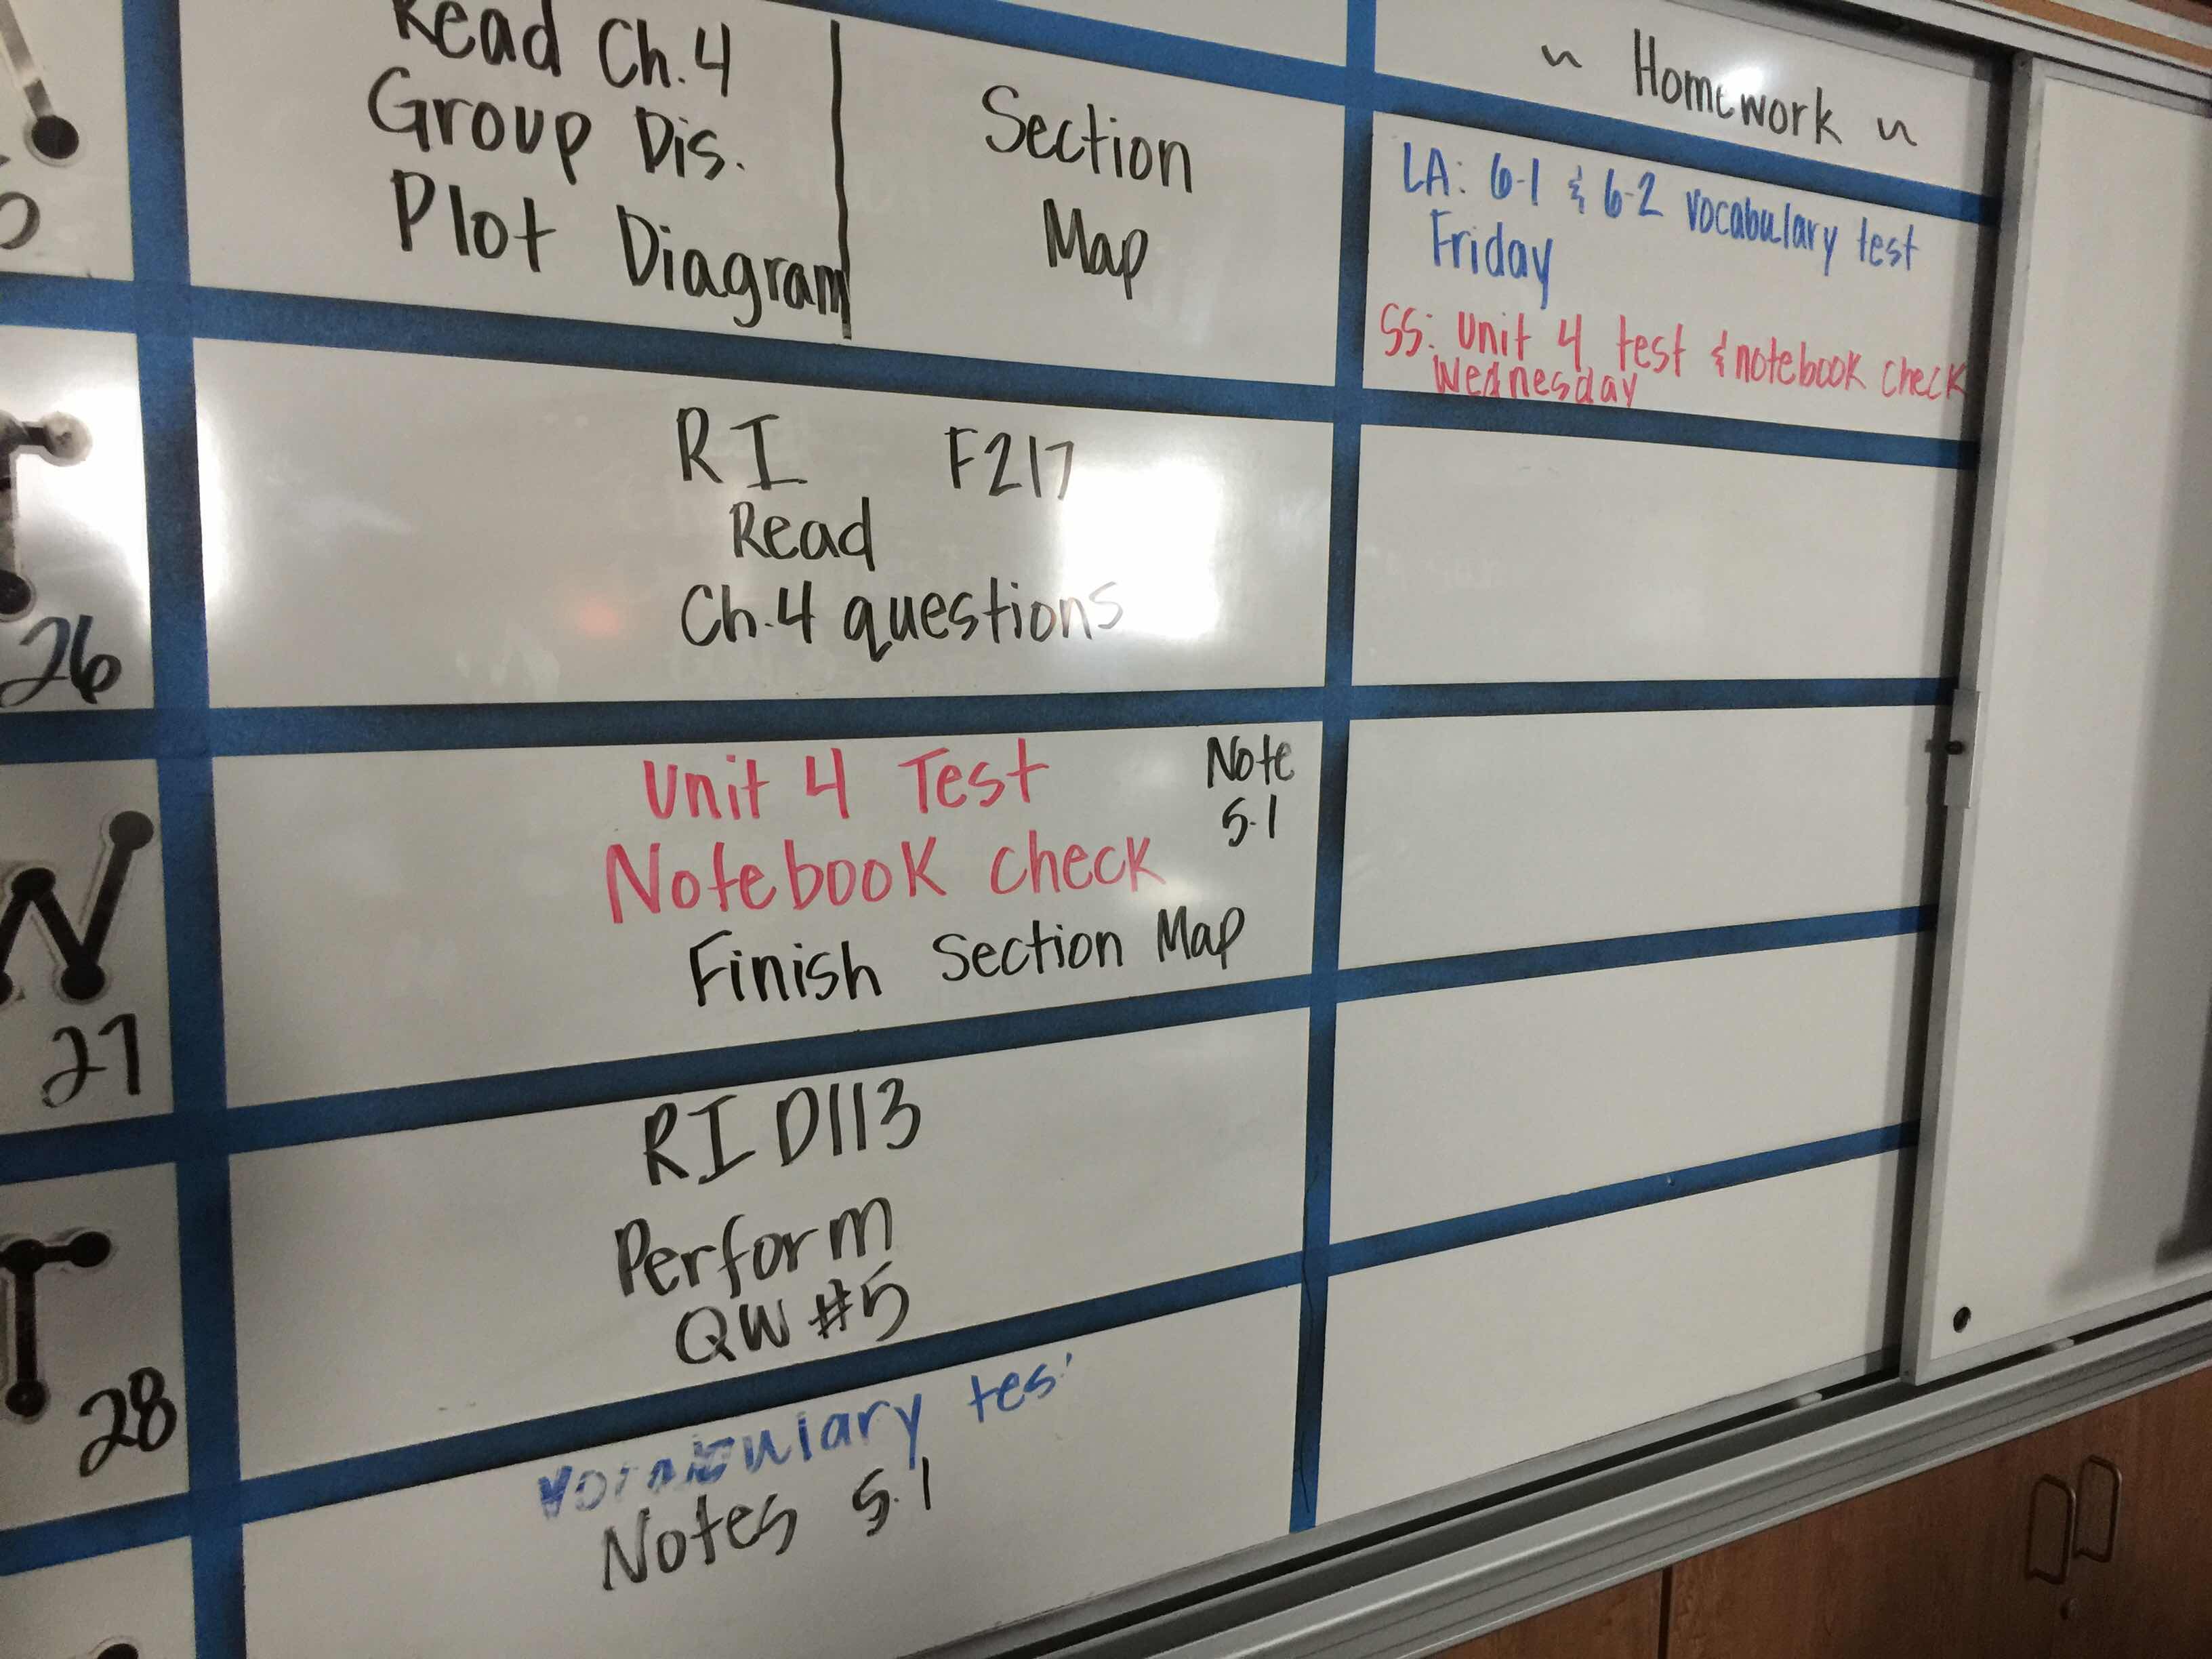 Read Ch.4
Group Dis.
Plot Diagram
Section
Map
~ Homework ~
LA: 6-1 & 6-2 vocabulary test
Friday
SS: Unit 4 test & notebook check
Wednesday
T
26
RI F217
Read
Ch.4 questions
W
27
Unit 4 Test
Notebook check
Finish Section Map
Note
5.1
T
28
RI D113
Perform
QW #5
Vocabulary test
Notes 5.1